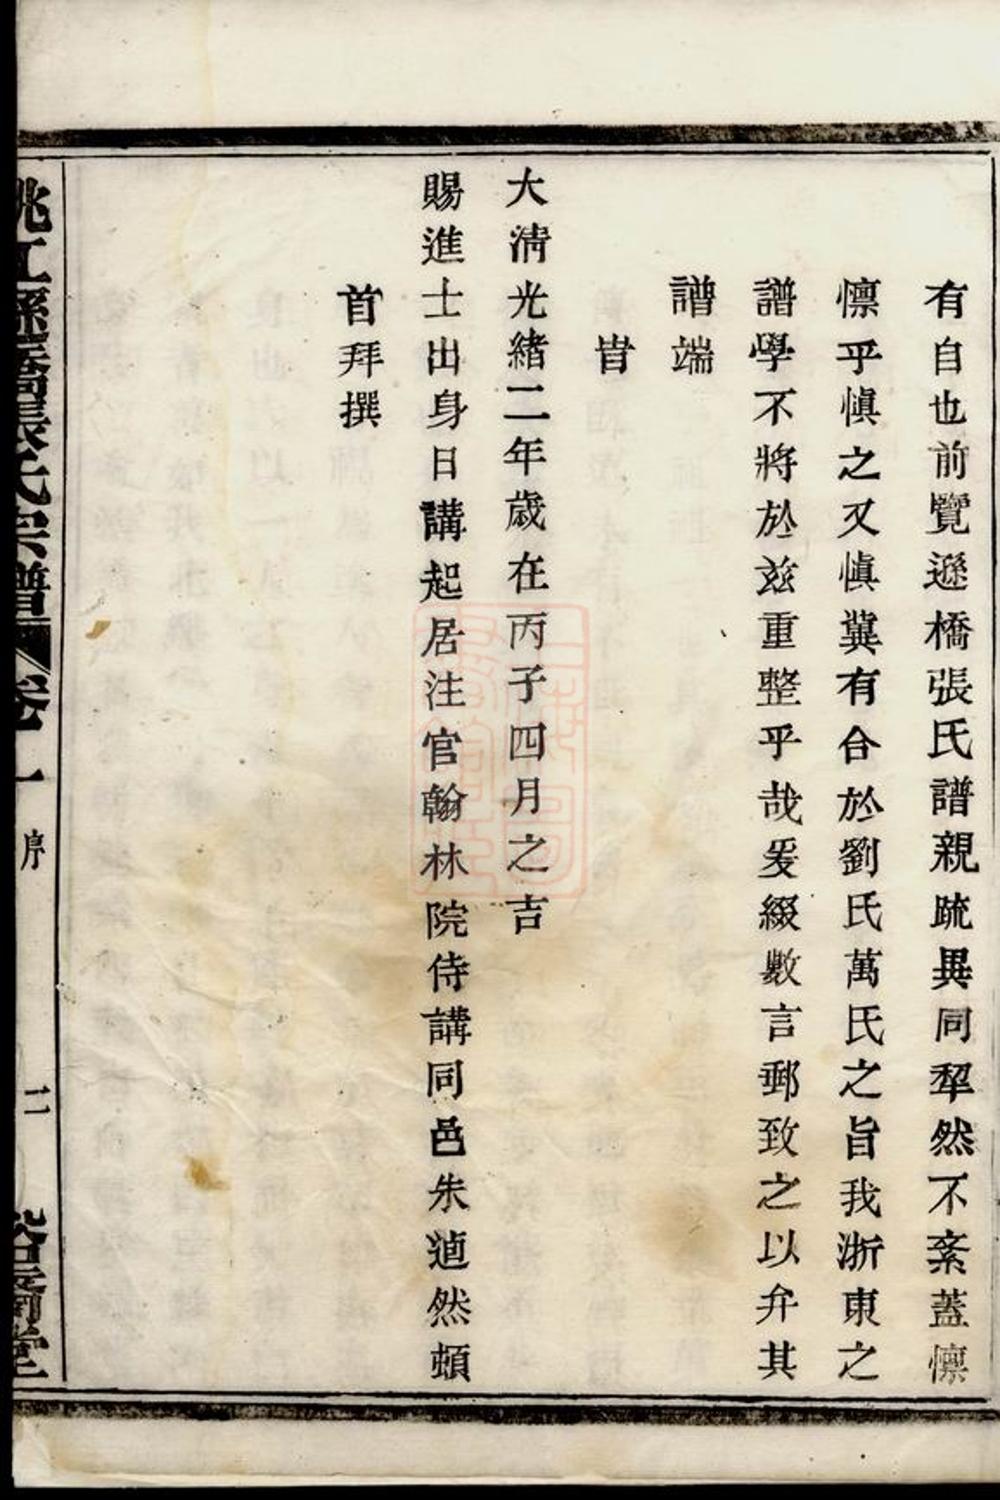 有自也前覽遜橋張氏譜親疏異同犂然不紊蓋懔
懔乎愼之又愼冀有合於劉氏萬氏之旨我浙東之
譜學不將於茲重整乎哉爰綴數言郵致之以弁其
譜端
旹
大淸光緒二年歲在丙子四月之吉
賜進士出身日講起居注官翰林院侍講同邑朱逌然頓
首拜撰
姚江孫橋張氏宗譜 卷一 序 二